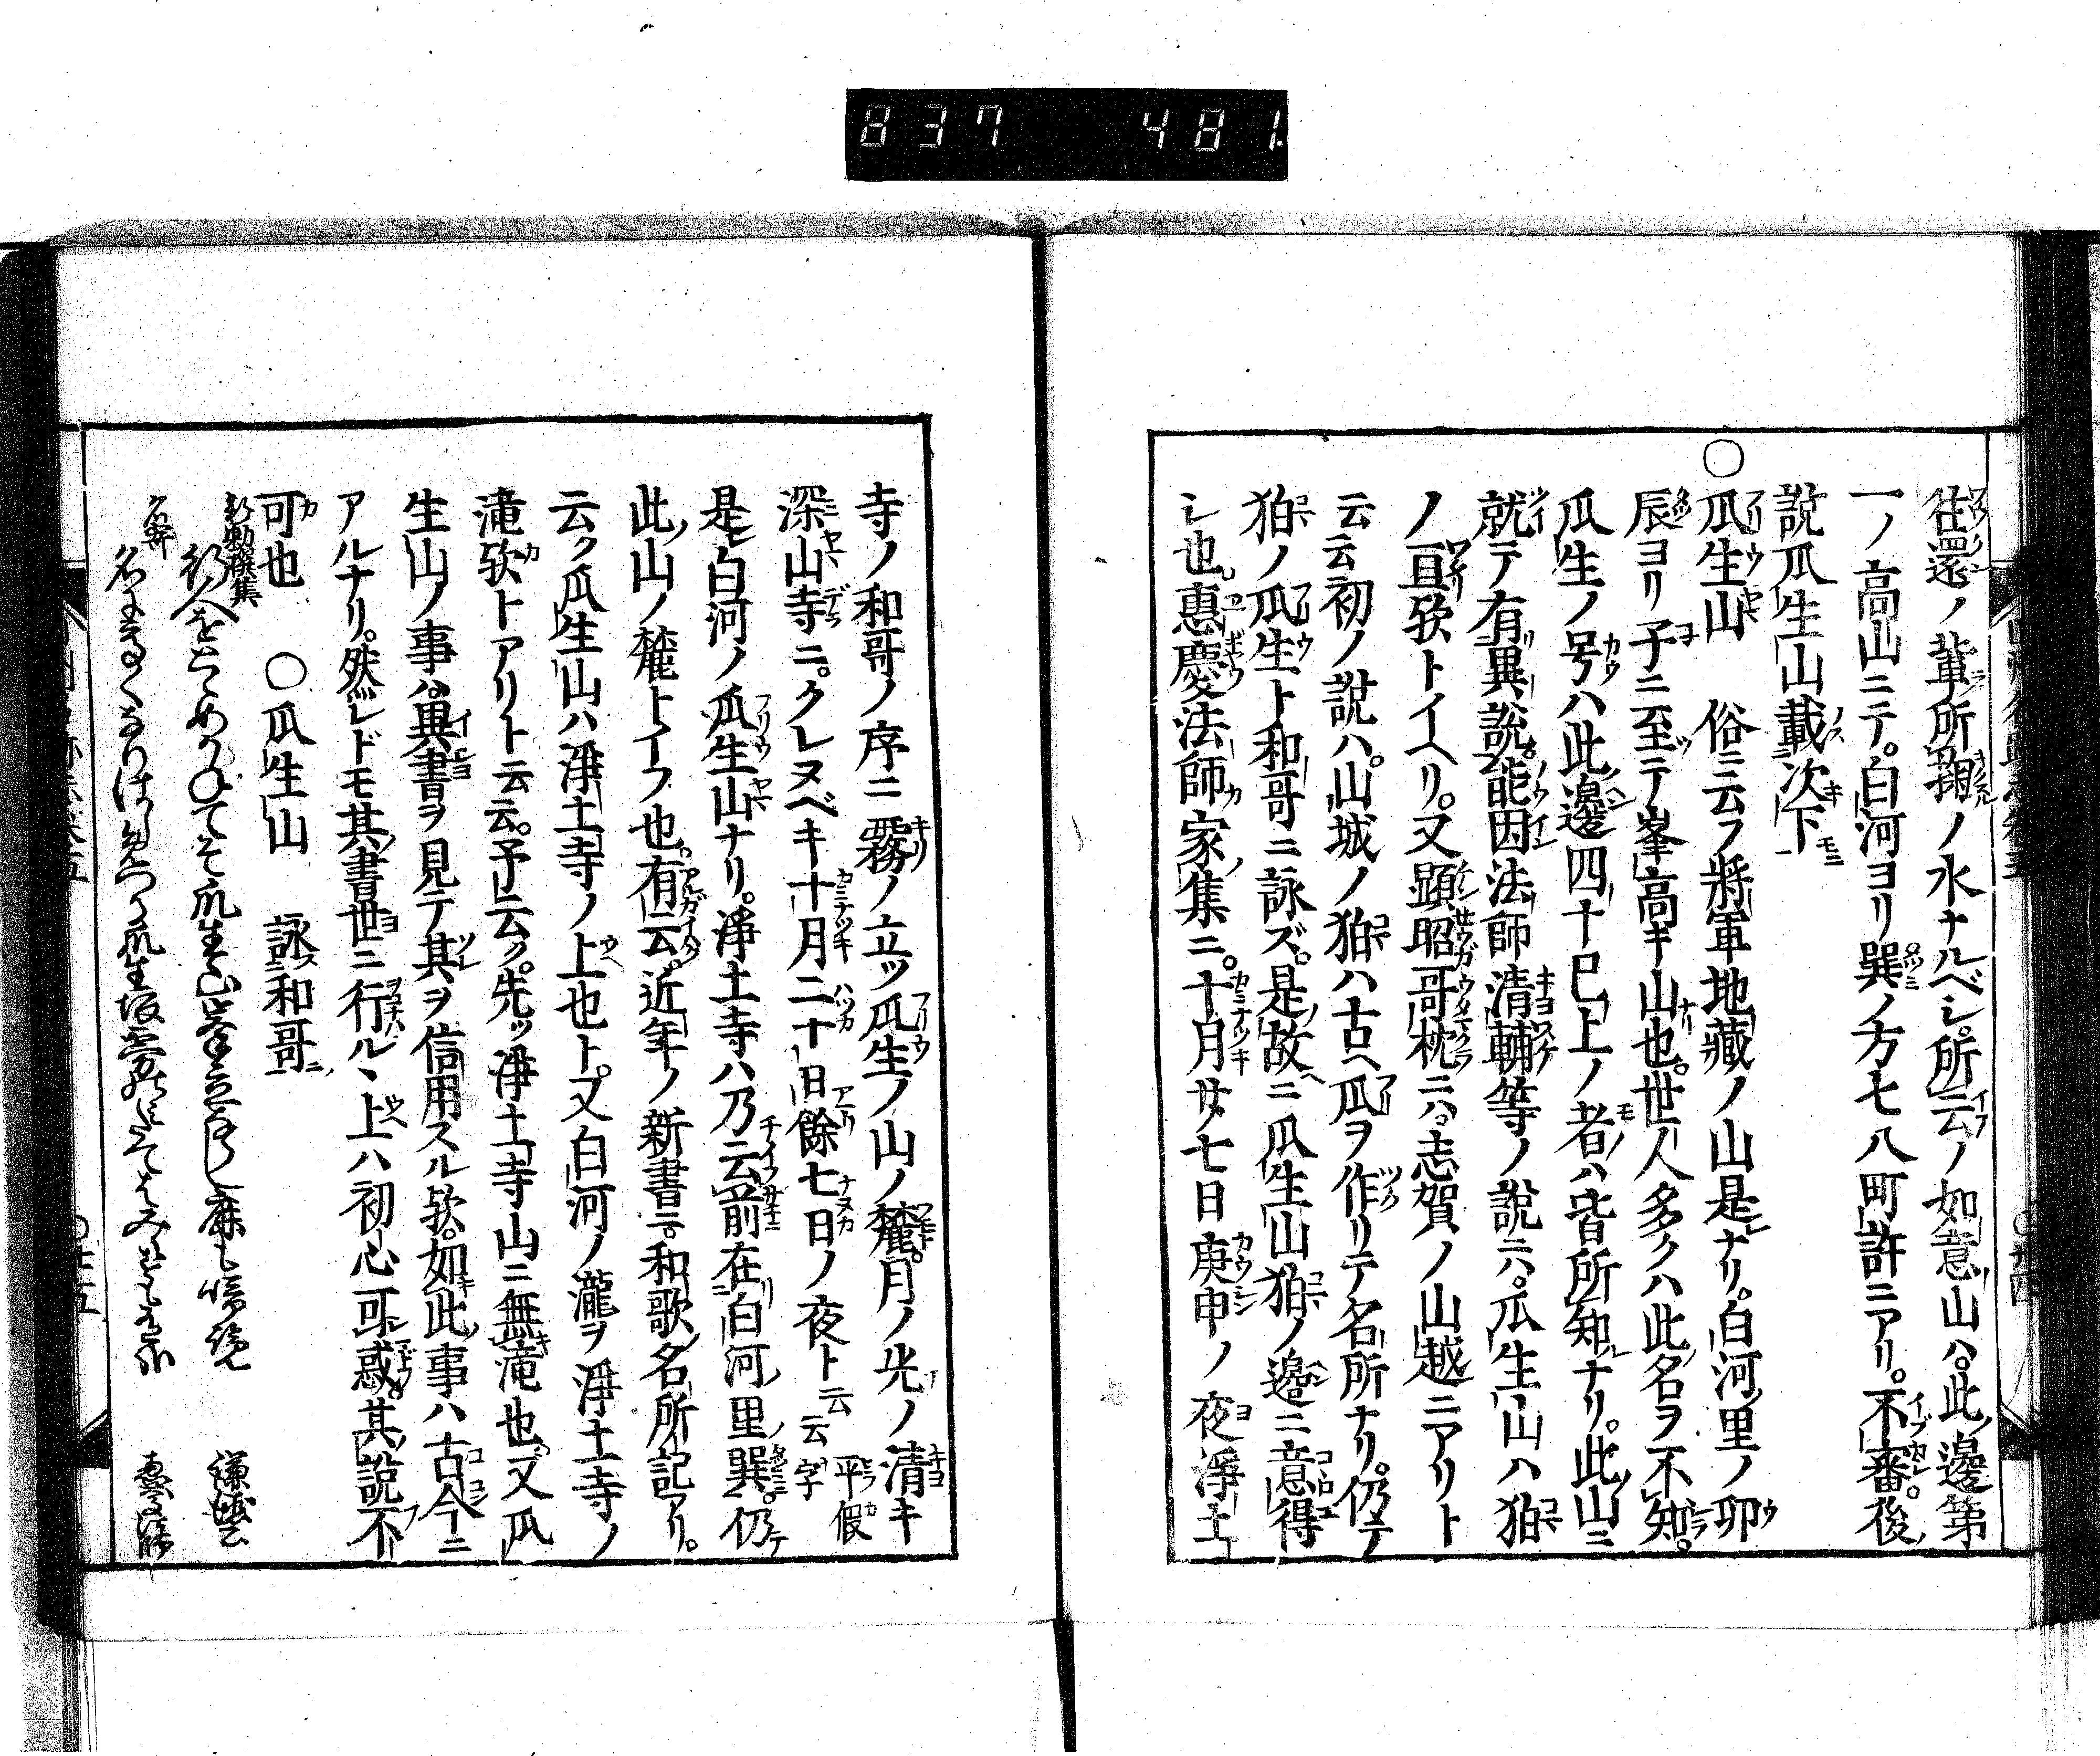 837 481.
往還ノ輩所掬ノ水ナルベシ。所云ノ如意山ハ。此邊第
一ノ高山ニテ。白河ヨリ巽ノ方七八町許ニアリ。不審後
説瓜生山載次下
○瓜生山 俗ニ云フ將軍地藏ノ山是ナリ。白河里ノ卯
辰ヨリ子ニ至テ峯高キ山也。世人多クハ此名ヲ不知。
瓜生ノ号ハ此邊四十已上ノ者ハ皆所知ナリ。此山ニ
就テ有異説。能因法師清輔等ノ説ニハ。瓜生山ハ狛
ノ亘欤トイヘリ。又顕昭哥枕ニハ。志賀ノ山越ニアリト
云云初ノ説ハ。山城ノ狛ハ古ヘ瓜ヲ作リテ名所ナリ。仍テ
狛ノ瓜生ト和哥ニ詠ズ。是故ニ瓜生山狛ノ邊ニ意得
シ也。惠慶法師家集ニ。十月廿七日庚申ノ夜淨土
寺ノ和哥ノ序ニ霧ノ立ツ瓜生ノ山ノ麓。月ノ光ノ清キ
深山寺ニ。クレヌベキ十月二十日餘七日ノ夜ト云云平假字
是白河ノ瓜生山ナリ。淨土寺ハ乃云前在白河里巽。仍テ
此山ノ麓トイフ也。有云。近年ノ新書ニ。和歌名所記アリ。
云ク瓜生山ハ淨土寺ノ上也ト。又白河ノ瀧ヲ淨土寺ノ
滝欤トアリト云云。予云ク。先ツ淨土寺山ニ無滝也。又瓜
生山ノ事ハ。異書ヲ見テ其ヲ信用スル欤。如此事ハ古今ニ
アルナリ。然レドモ其書世ニ行ハルヽ上ハ初心可惑。其説不
可也 ○瓜生山 詠和哥
新勅撰集